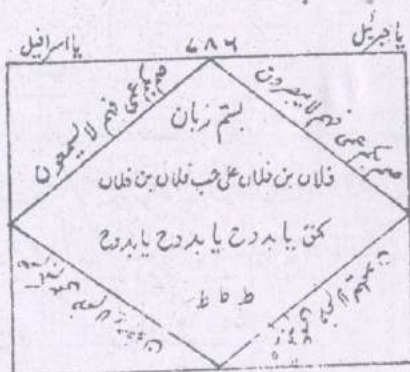 یا جبرئیل ۷۸۶ یا اسرافیل
صم بکم عمی فہم لا یبصرون
صم بکم عمی فہم لا یسمعون
بستم زبان
فلاں بن فلاں علی حب فلاں بن فلاں
بحق یا بدوح یا بدوح یا بدوح
ط ط ط